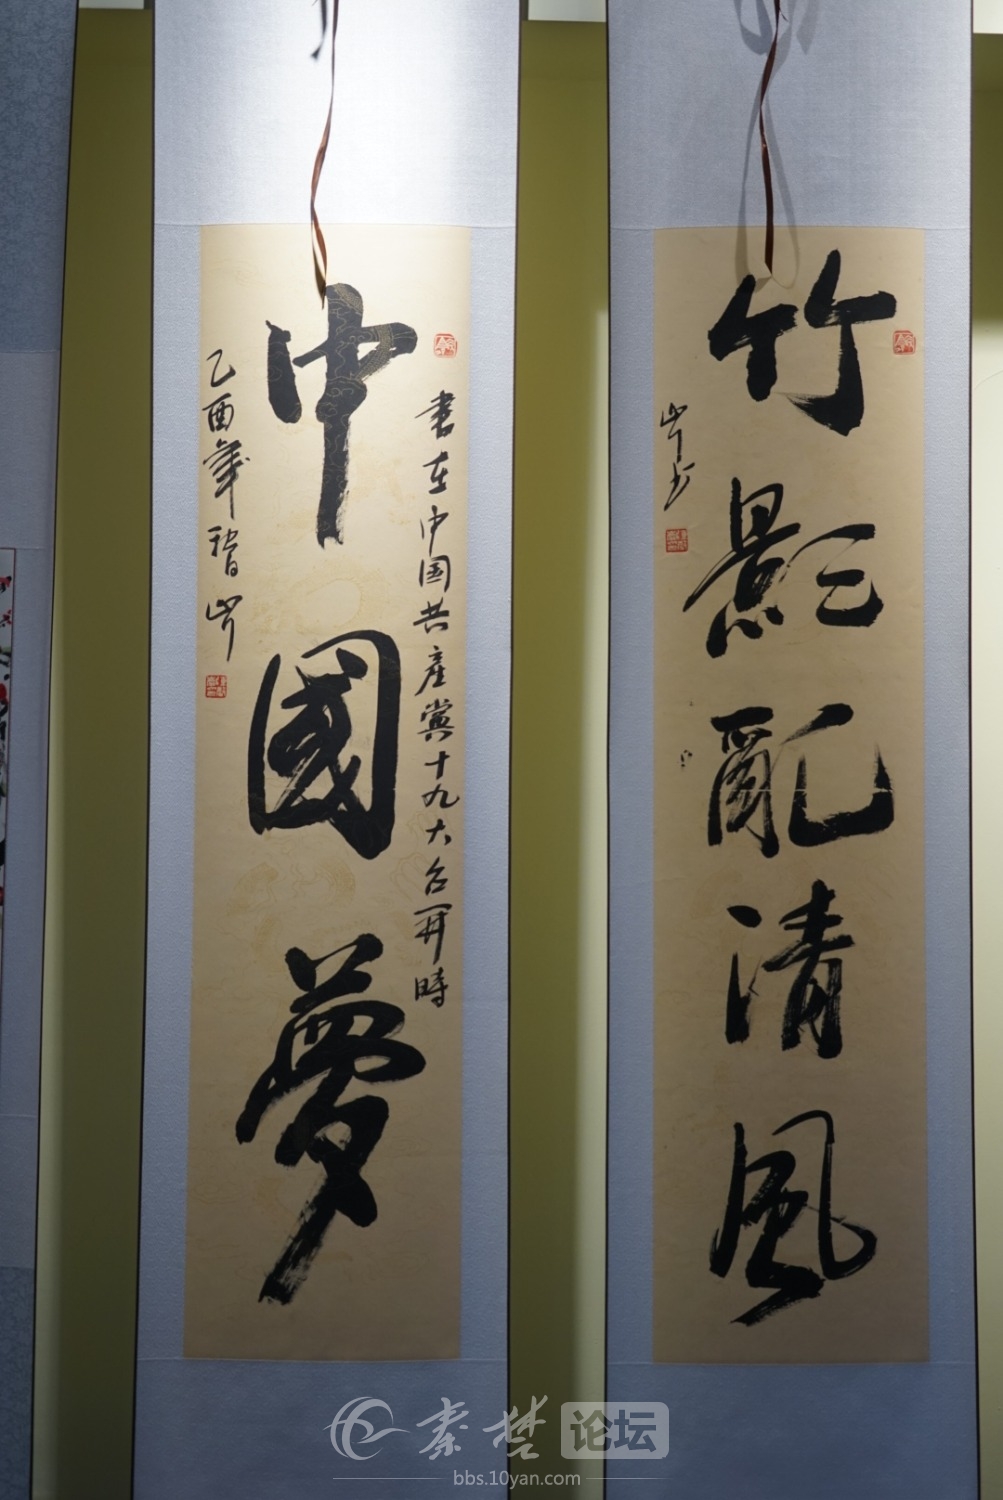 竹影亂清風
中國夢
书在中国共產黨十九大召开時
乙酉年
秦楚论坛
bbs.10yan.com